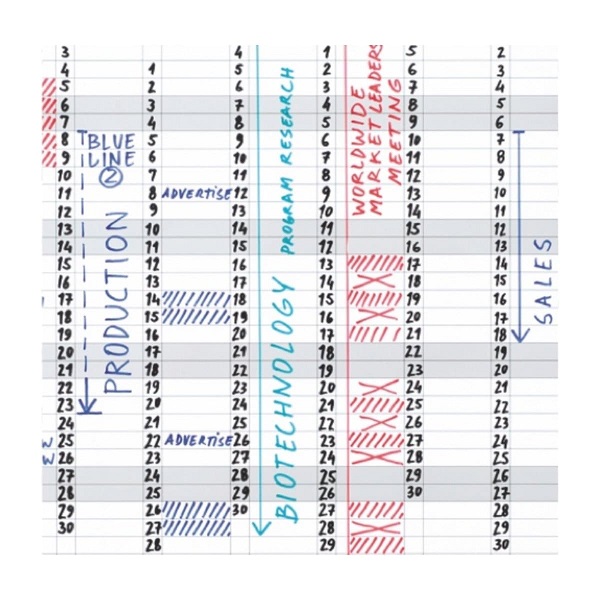 3
4
5
6
7
8
9
10
11
12
13
14
15
16
17
18
19
20
21
22
23
24
25
26
27
28
29
30
W
W
BLUE
LINE
2
PRODUCTION
1
2
3
4
5
6
7
8
9
10
11
12
13
14
15
16
17
18
19
20
21
22
23
24
25
26
27
28
ADVERTISE
ADVERTISE
4
5
6
7
8
9
10
11
12
13
14
15
16
17
18
19
20
21
22
23
24
25
26
27
28
29
30
BIOTECHNOLOGY PROGRAM RESEARCH
1
2
3
4
5
6
7
8
9
10
11
12
13
14
15
16
17
18
19
20
21
22
23
24
25
26
27
28
29
WORLDWIDE
MARKET LEADERS
MEETING
5
6
7
8
9
10
11
12
13
14
15
16
17
18
19
20
21
22
23
24
25
26
27
28
29
30
2
3
4
5
6
7
8
9
10
11
12
13
14
15
16
17
18
19
20
21
22
23
24
25
26
27
28
29
30
SALES